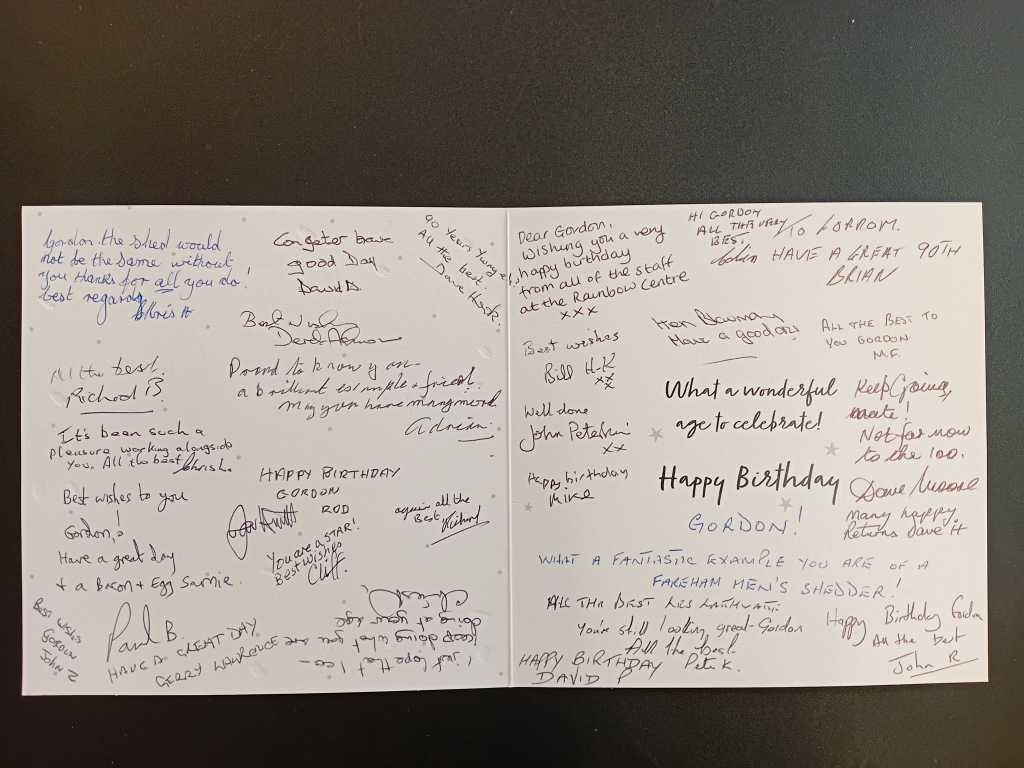 Gordon the shed would
not be the same without
you thanks for all you do!
best regards
Chris H
good Day
David D.
90 Years Young
All the best.
Dave
Best
Derek
All the best.
Richard B
Proud to know you
a brilliant example &
may you have many more
Adrian.
It's been such a
pleasure working alongside
you. All the best
Chris L.
HAPPY BIRTHDAY
GORDON
ROD
Best wishes to you
Gordon!
Have a great day
& a Bacon & Egg Sarnie.
You are a STAR!
Best wishes
Cliff
again all the
Best Richard
Best Wishes
GORDON
John
Paul B.
HAVE A GREAT DAY
GERRY LAWRENCE
I just hope that I can
keep doing what you are
doing at your age
Dear Gordon,
Wishing you a very
happy birthday
from all of the staff
at the Rainbow Centre
xxx
HI GORDON
ALL THE VERY
BEST.
Colin
TO GORDON.
HAVE A GREAT 90TH
BRIAN
Best wishes
Bill H-K
xx
Ken
Have a good one
ALL THE BEST TO
YOU GORDON
M.F.
Well done
John Peterkin
xx
What a wonderful
age to celebrate!
Keep Going,
mate!
Not far now
to the 100.
Dave Moore
Happy birthday
Mike
Happy Birthday
GORDON!
many happy
Returns Dave H
WHAT A FANTASTIC EXAMPLE YOU ARE OF A
FAREHAM MEN'S SHEDDER!
ALL THE BEST LES
You're still looking great Gordon
All the best.
Pete K.
HAPPY BIRTHDAY
DAVID P
Happy Birthday Gordon
All the best
John R